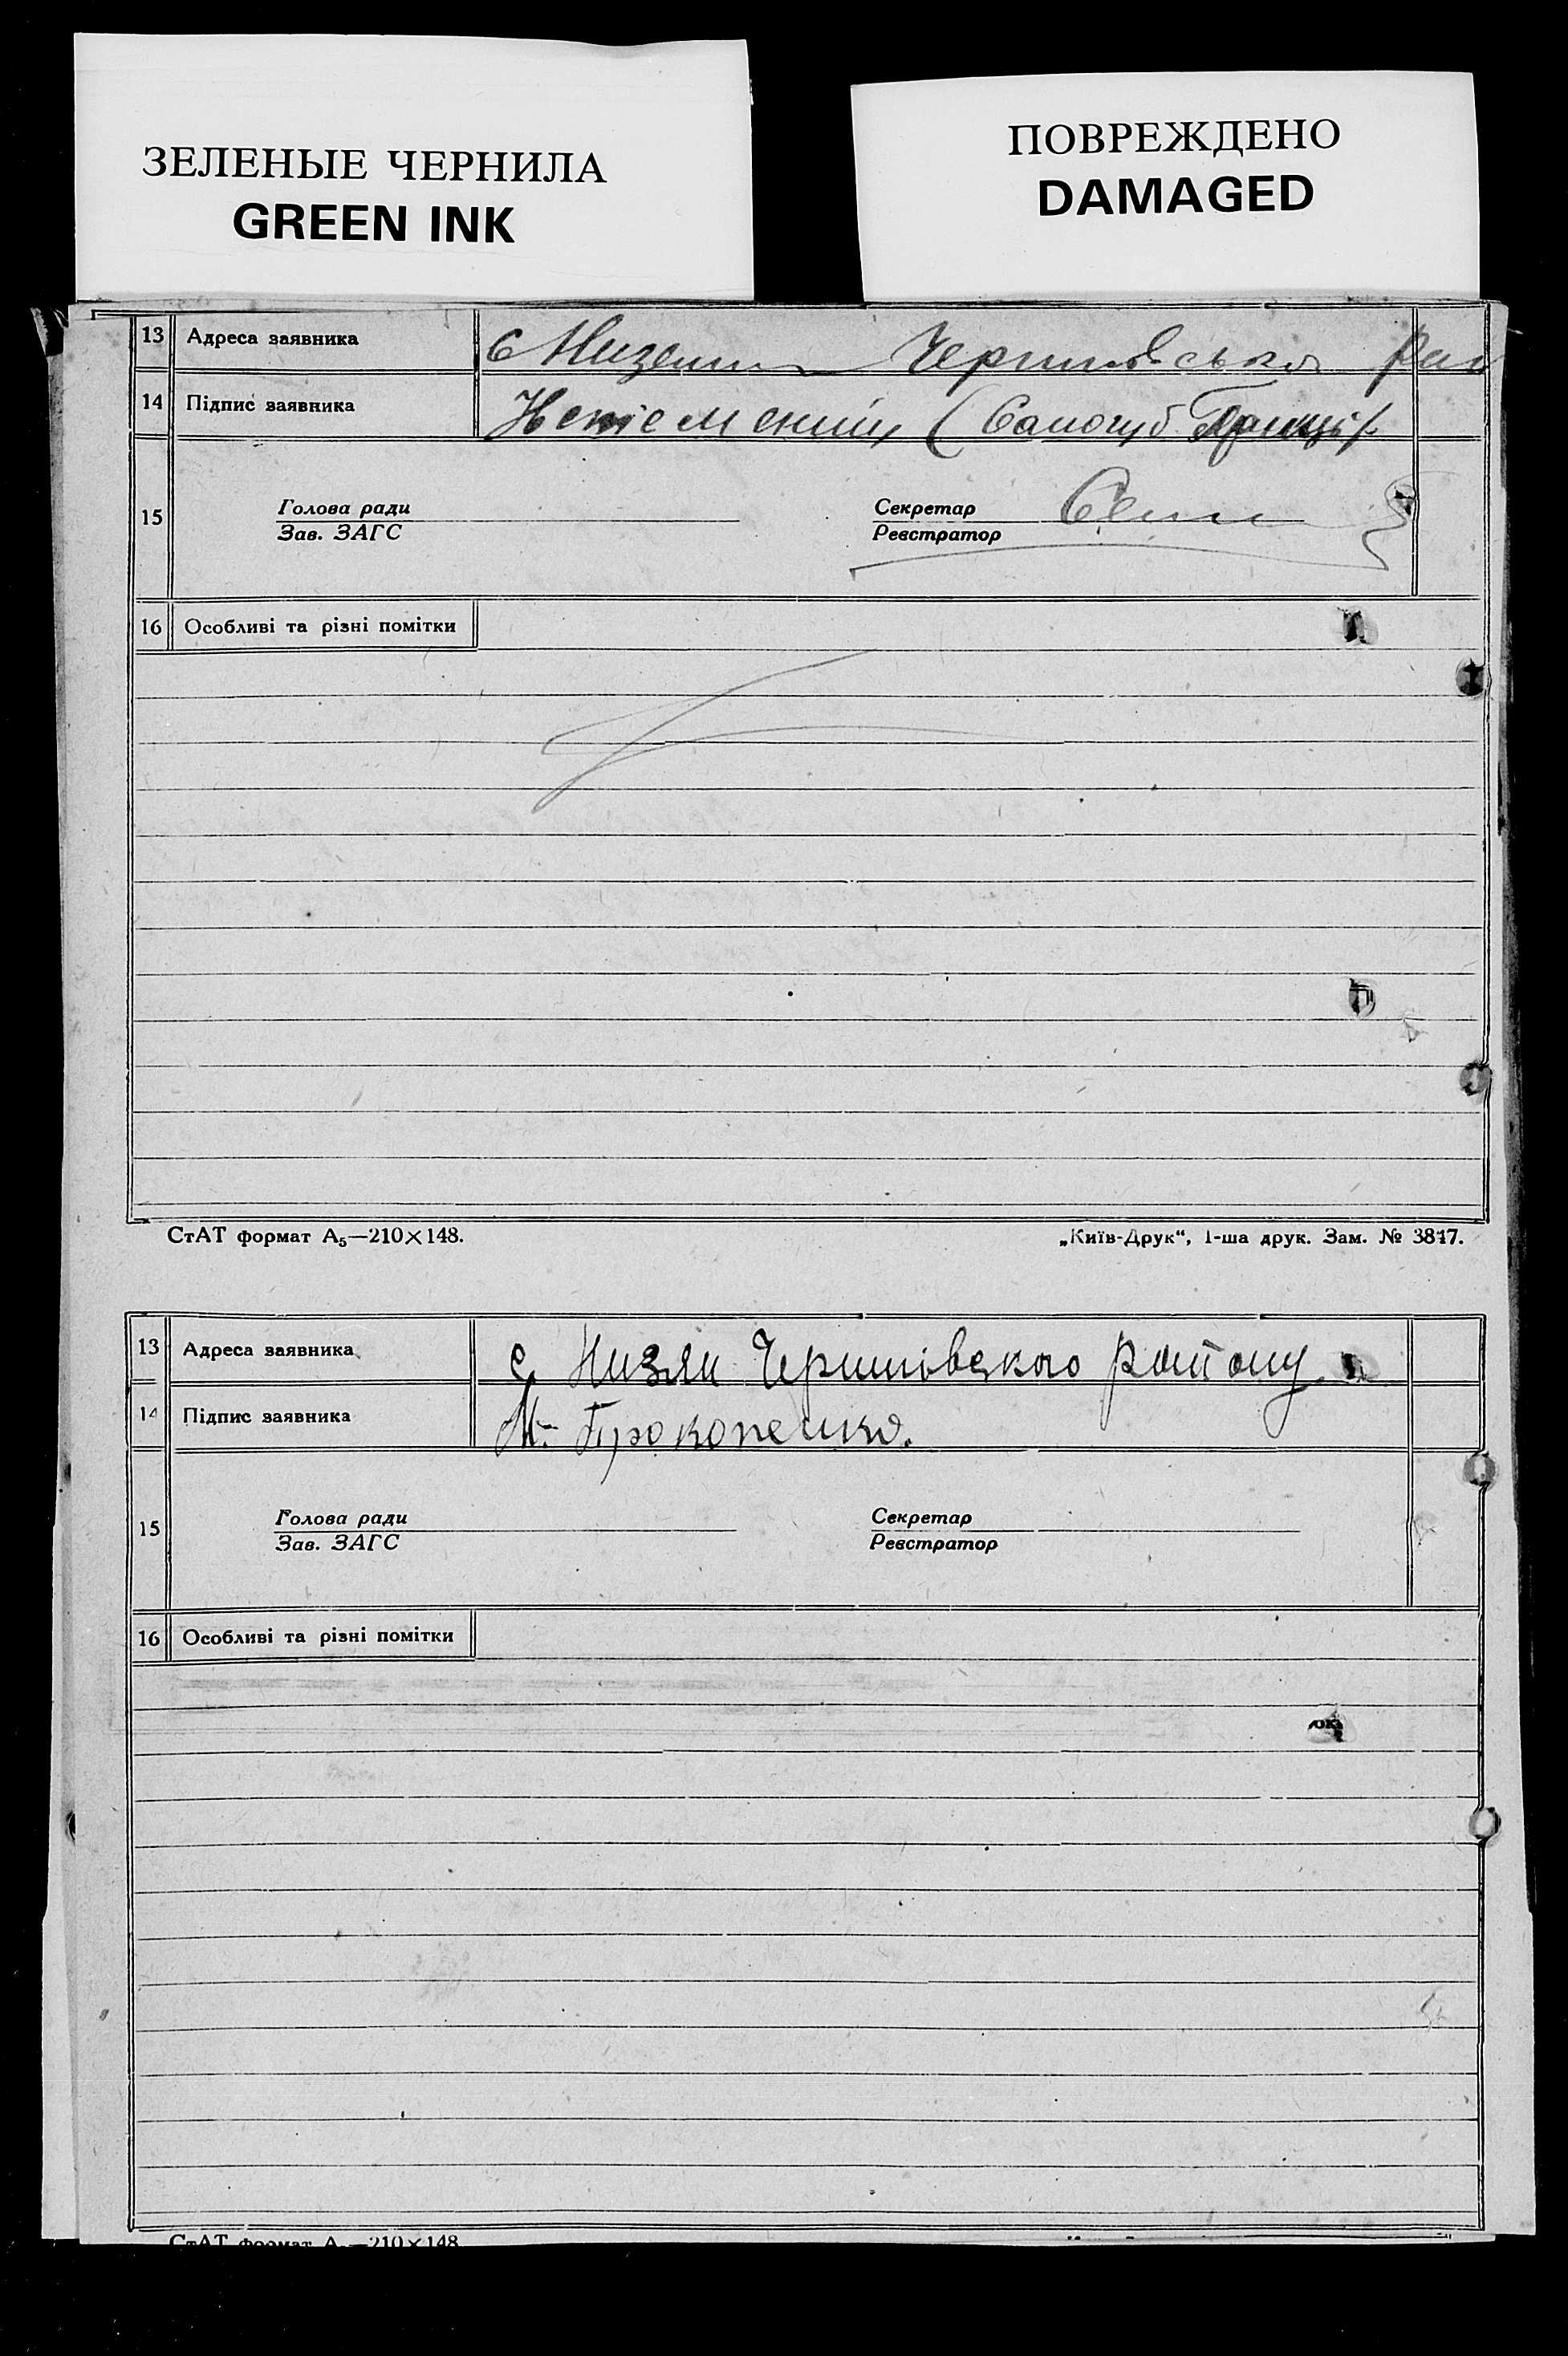 ЗЕЛЕНЫЕ ЧЕРНИЛА
GREEN INK
ПОВРЕЖДЕНО
DAMAGED
13 Адреса заявника с
14 Підпис заявника (Самогуб
15 Голова ради Секретар
Зав. ЗАГС Реєстратор
16 Особливі та різні помітки
СтАТ формат А5—210×148. „Київ-Друк“, 1-ша друк. Зам. № 3817.
13 Адреса заявника с. Низяни району
14 Підпис заявника Прокопенко.
15 Голова ради Секретар
Зав. ЗАГС Реєстратор
16 Особливі та різні помітки
СтАТ формат А5—210×148